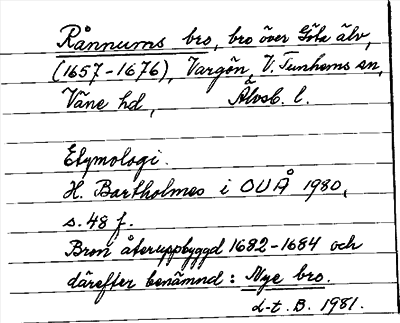 Rånnums bro, bro över Göta älv,
(1657-1676), Vargön, V. Tunhems sn,
Väne hd, Älvsb. l.
Etymologi.
H. Bartholmes i OUÅ 1980,
s. 48 f.
Bron återuppbyggd 1682-1684 och
därefter benämnd: Nye bro.
d-t. B. 1981.